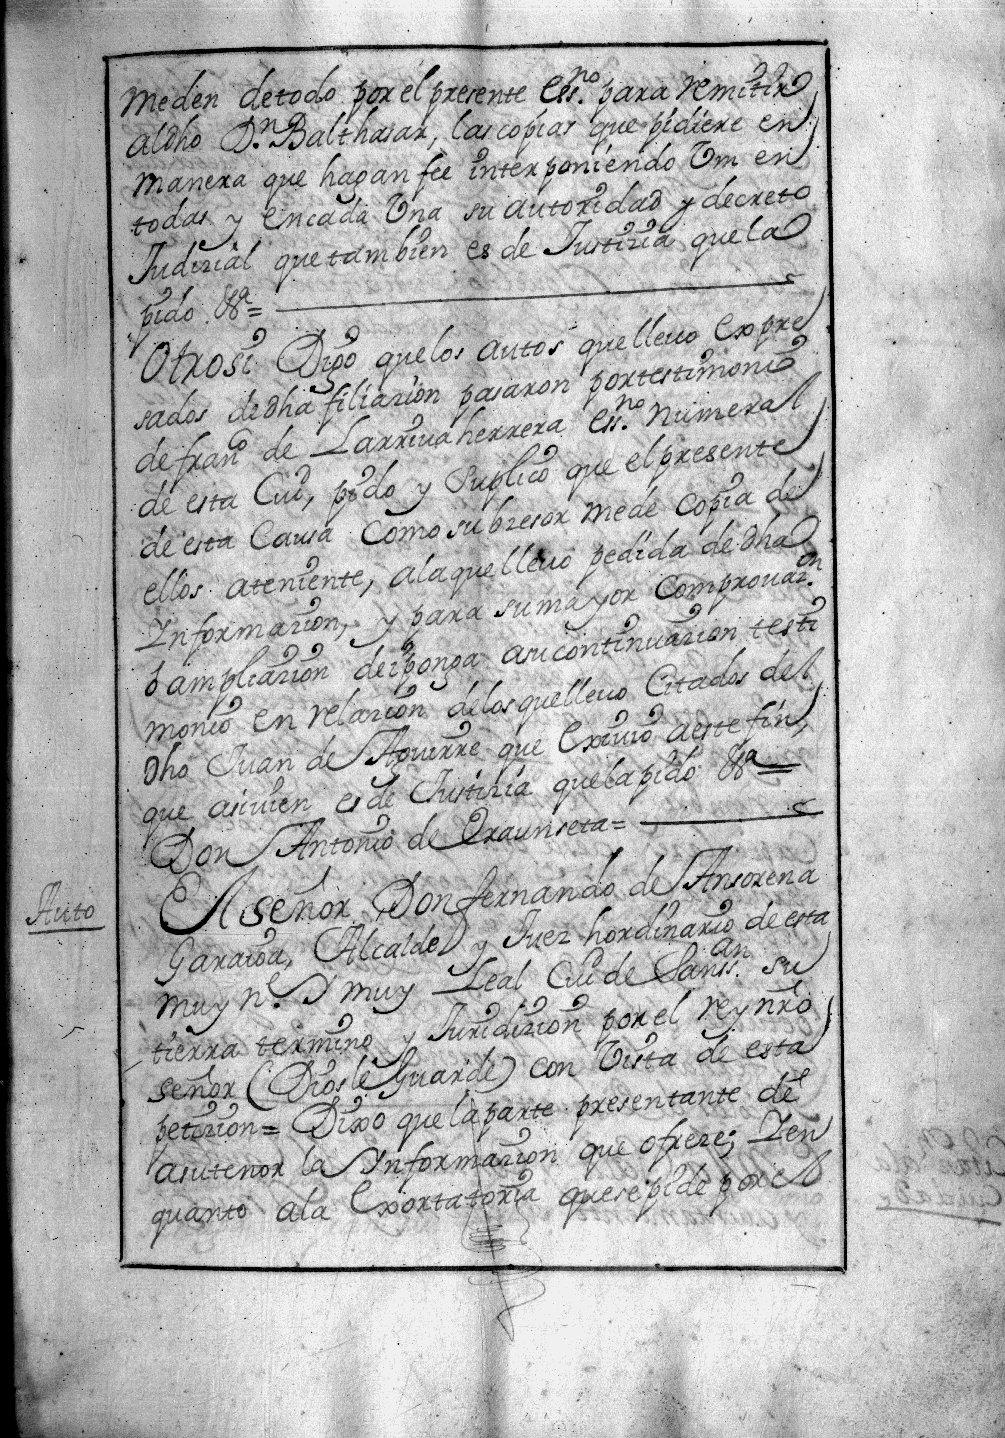 meden detodo por el presente Ess.no para remitir
aldho D.n Balthasar, las copias que pidiere en
manera que hagan fee interponiendo Vm en
todas y encada Vna su autoridad y decreto
Judizial que tambien es de Justizia que la
pido &a =
Otrosi Digo que los autos que lleuo expre
sados de dha filiazion pasaron por testimonio
de fran.co de Larriua herrera Ess.no numeral
de esta Ciu.d, pido y Suplico que el presente
de esta Causa como subzesor mede copia de
ellos ateniente, ala que lleuo pedida de dha
Informazion, y para su mayor Comprouaz.on
o ampliazion de i ponga asu continuazion testi
monio en relazion delos que lleuo Citados del
dho Juan de Aguirre que Exiuio a este fin,
que asiuien es de Justizia que la pido &a =
Don Antonio de Oraunseta =
Auto
El señor Don fernando de Ansorena
Garaioa, Alcalde y Juez hordinario de esta
muy n.e y muy Leal Ciu.d de Sanss.an su
tierra termino y Juridizion por el rey nr̃o
señor (Dios le Guarde) con Vista de esta
petizion = Dixo que la parte presentante dè
asu tenor la Informazion que ofreze; Y en
quanto ala Exortatoria que se pide por el